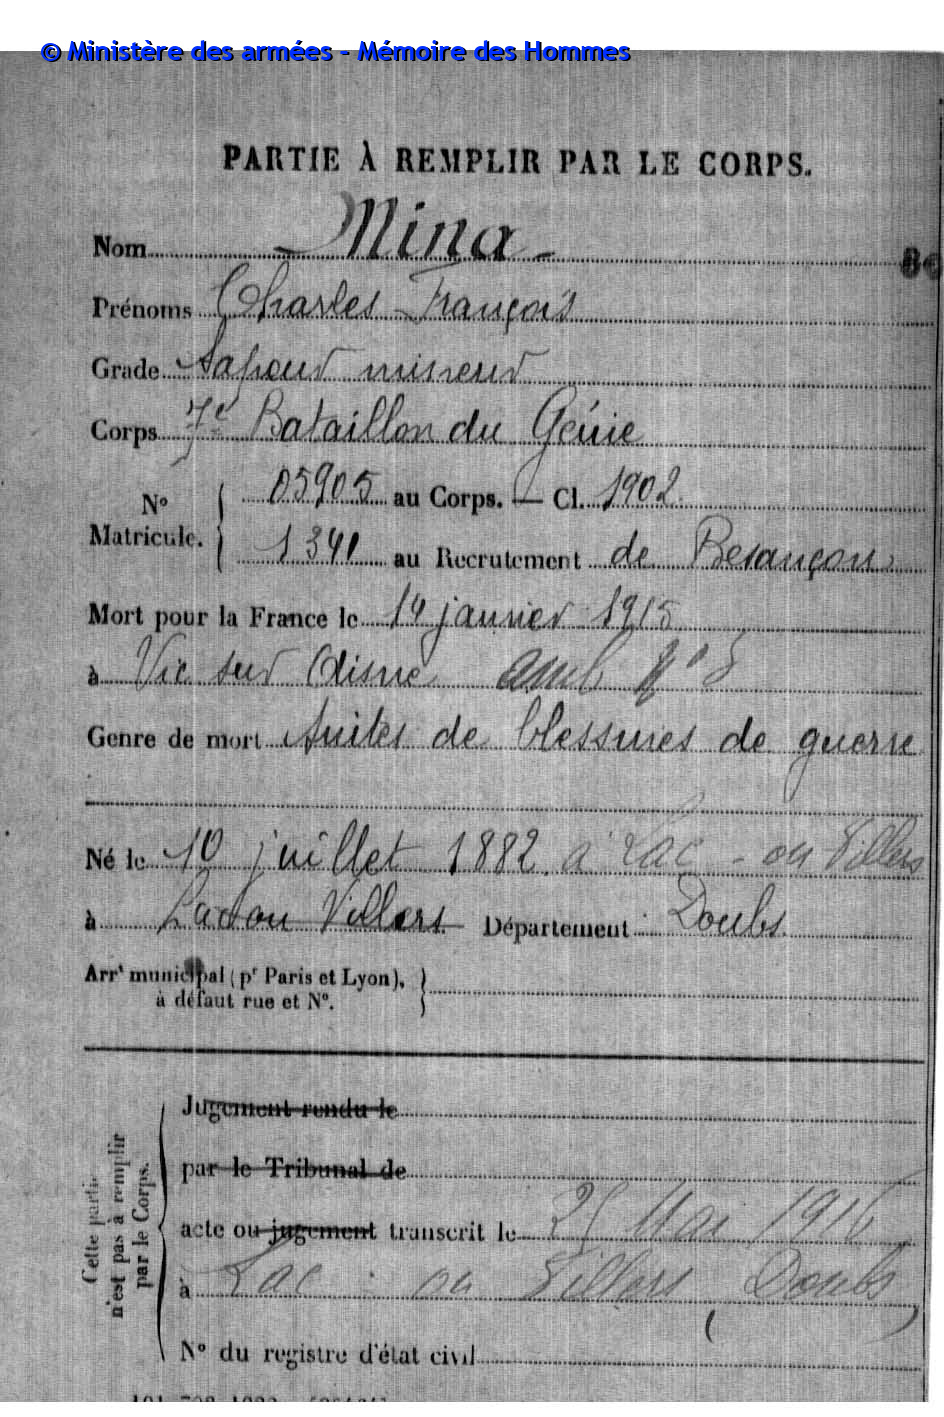 © Ministère des armées - Mémoire des Hommes
PARTIE À REMPLIR PAR LE CORPS.
Nom Mina
Prénoms Charles François
Grade Sapeur mineur
Corps 7e Bataillon du Génie
N° Matricule. 05905 au Corps. — Cl. 1902
1341 au Recrutement de Besançon
Mort pour la France le 14 janvier 1915
à Vic sur Aisne amb n° 5
Genre de mort Suites de blessures de guerre
Né le 10 juillet 1882 à Lac - ou Villers
à Lac ou Villers Département Doubs
Arrt municipal (pr Paris et Lyon),
à défaut rue et N°.
Cette partie n'est pas à remplir par le Corps.
Jugement rendu le
par le Tribunal de
acte ou jugement transcrit le 25 Mai 1916
à Lac - ou Villers (Doubs)
N° du registre d'état civil